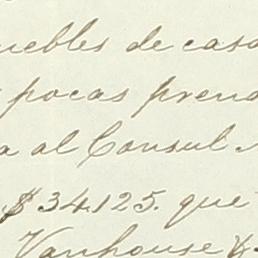 muebles de casa
pocas prend
a al Consul
$34.125. que
Vanhouse &